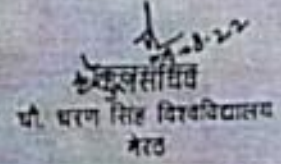 कुलसचिव
चौ. चरण सिंह विश्वविद्यालय
मेरठ